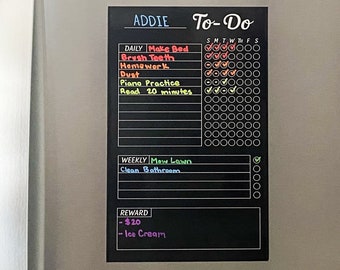 ADDIE To-Do
S M T W Th F S
DAILY Make Bed
Brush Teeth
Homework
Dust
Piano Practice
Read 20 minutes
WEEKLY Mow Lawn
Clean Bathroom
REWARD
- $20
- Ice Cream